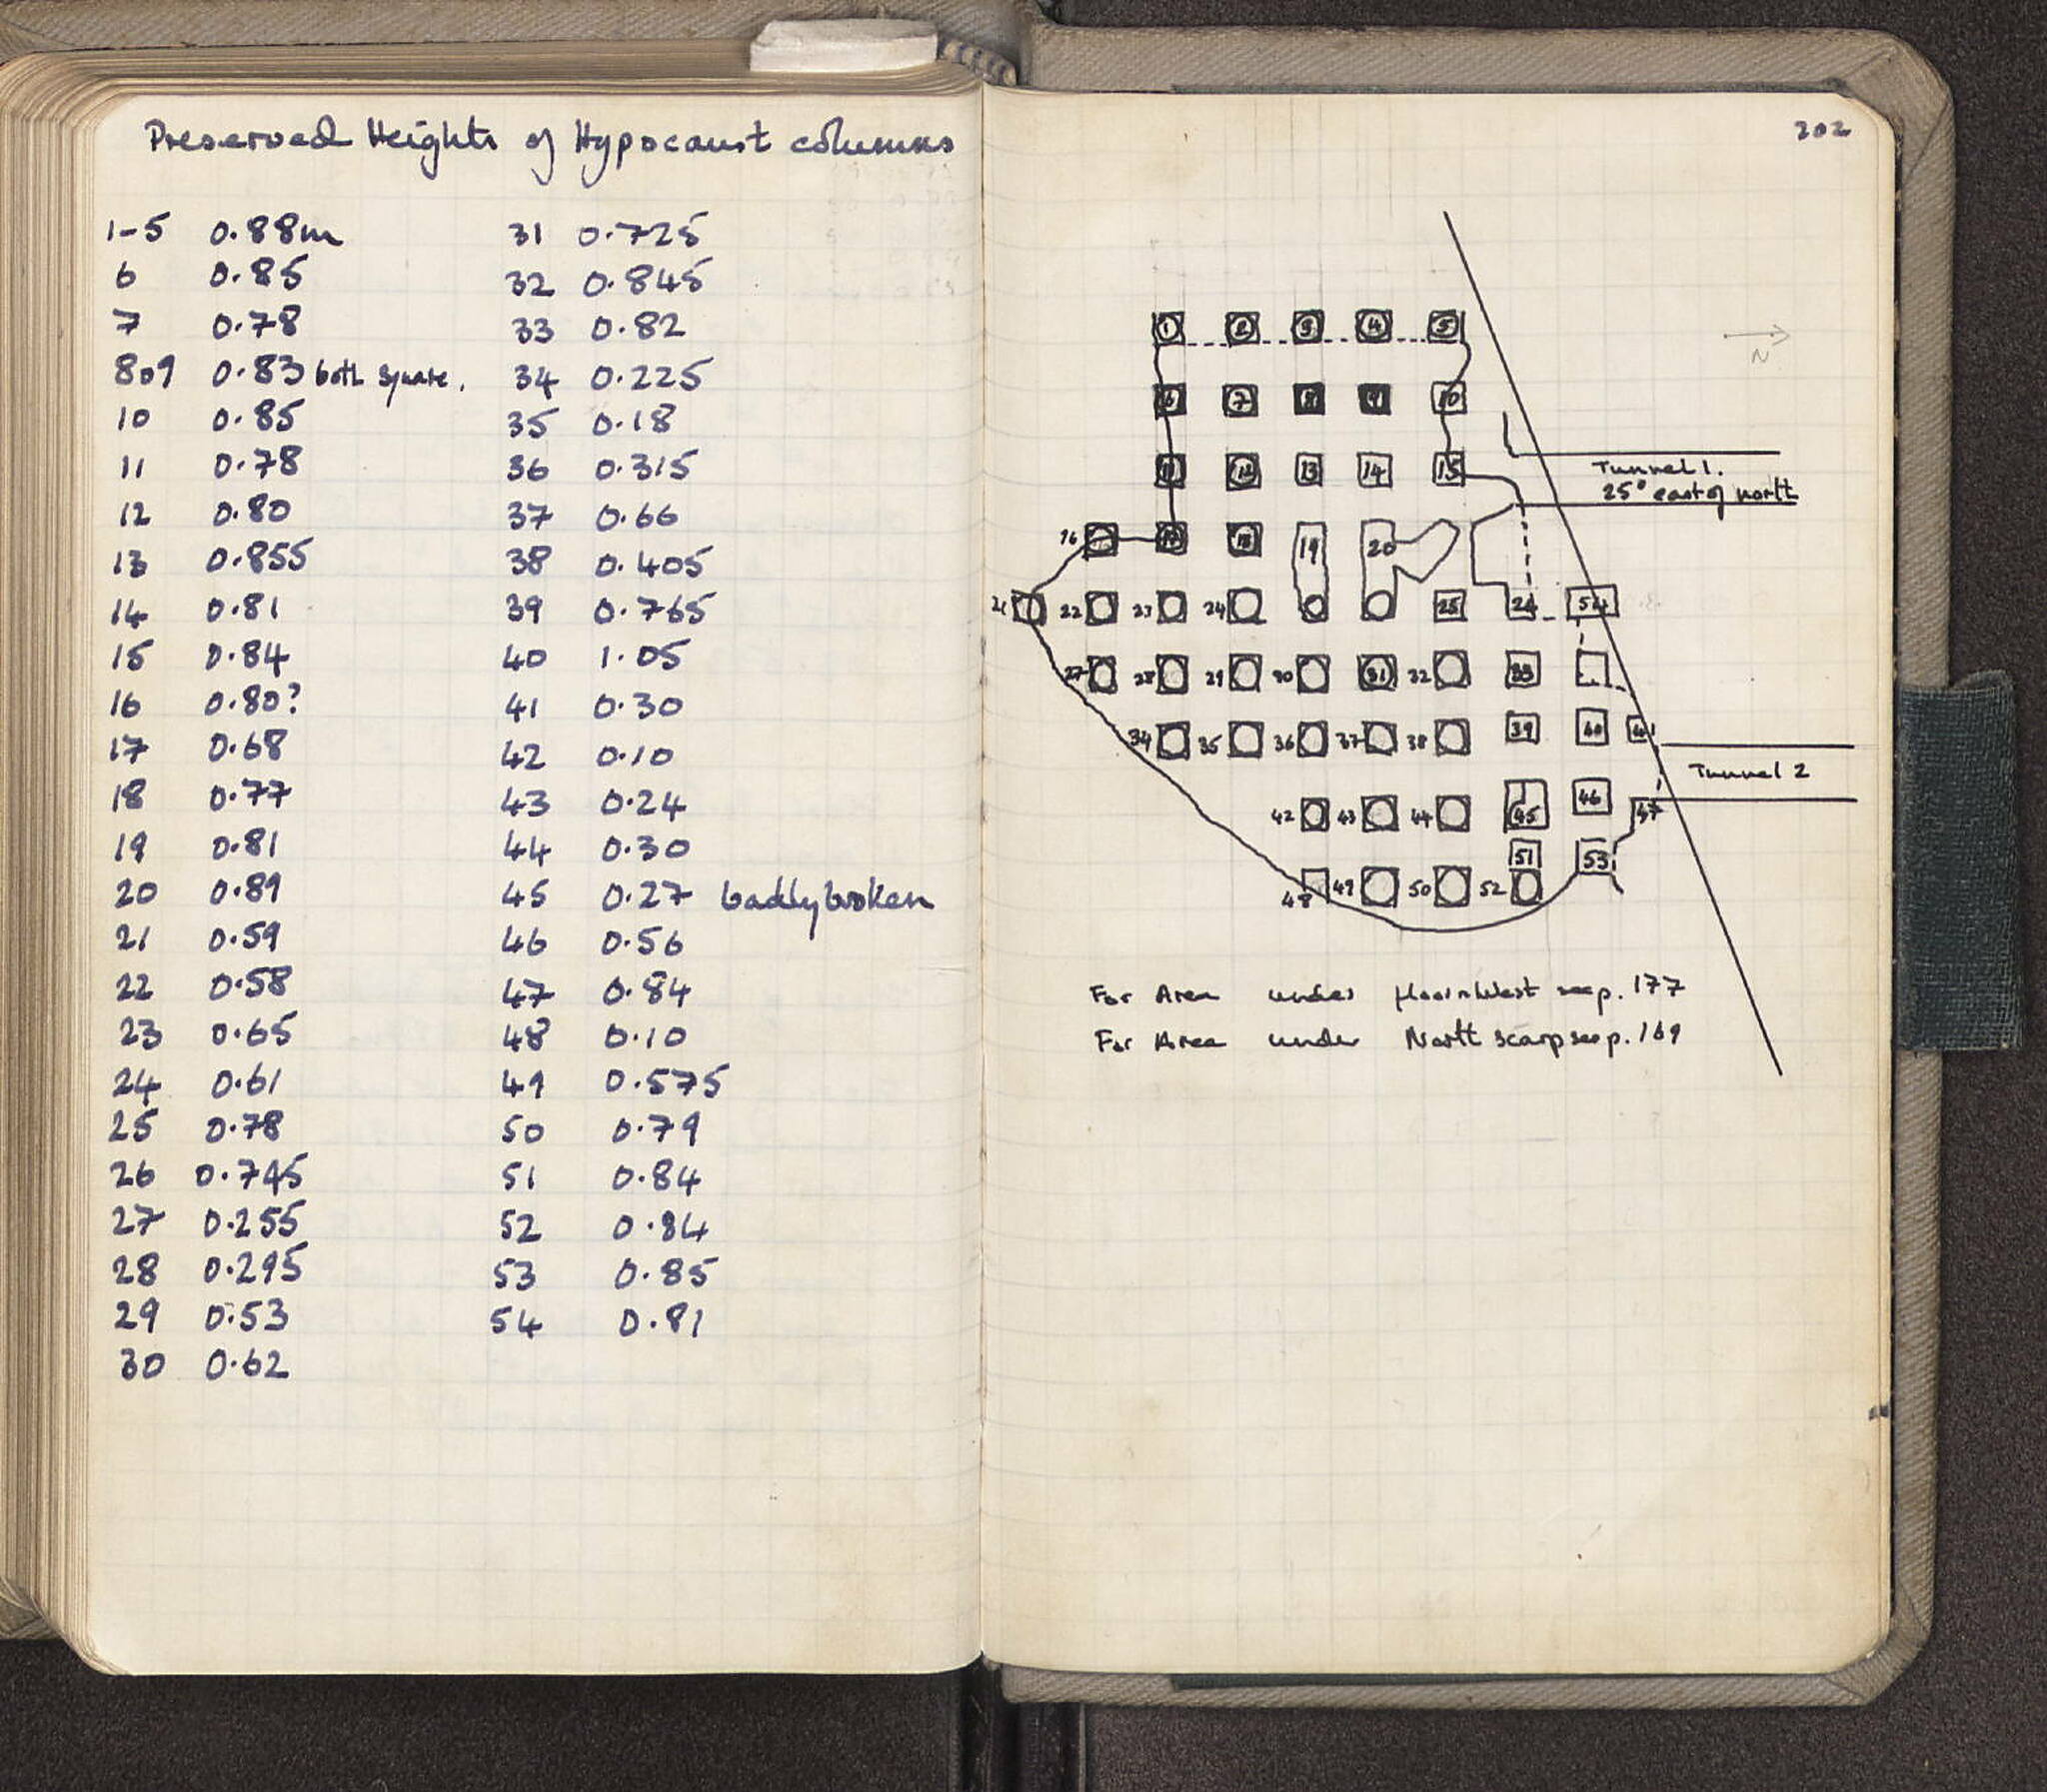 Preserved Heights of Hypocaust columns
1-5 0.88m
6 0.85
7 0.78
8 & 9 0.83 both square.
10 0.85
11 0.78
12 0.80
13 0.855
14 0.81
15 0.84
16 0.80?
17 0.68
18 0.77
19 0.81
20 0.89
21 0.59
22 0.58
23 0.65
24 0.61
25 0.78
26 0.745
27 0.255
28 0.295
29 0.53
30 0.62
31 0.725
32 0.845
33 0.82
34 0.225
35 0.18
36 0.315
37 0.66
38 0.405
39 0.765
40 1.05
41 0.30
42 0.10
43 0.24
44 0.30
45 0.27 badly broken
46 0.56
47 0.84
48 0.10
49 0.575
50 0.79
51 0.84
52 0.84
53 0.85
54 0.81
202
N
1 2 3 4 5
6 7 8 9 10
11 12 13 14 15
Tunnel 1.
25° east of north
16 17 18 19 20
21 22 23 24 25 26 54
27 28 29 30 31 32 33
34 35 36 37 38 39 40 41
Tunnel 2
42 43 44 45 46 47
51 53
48 49 50 52
For Area under floor in West see p. 177
For Area under North scarp see p. 169